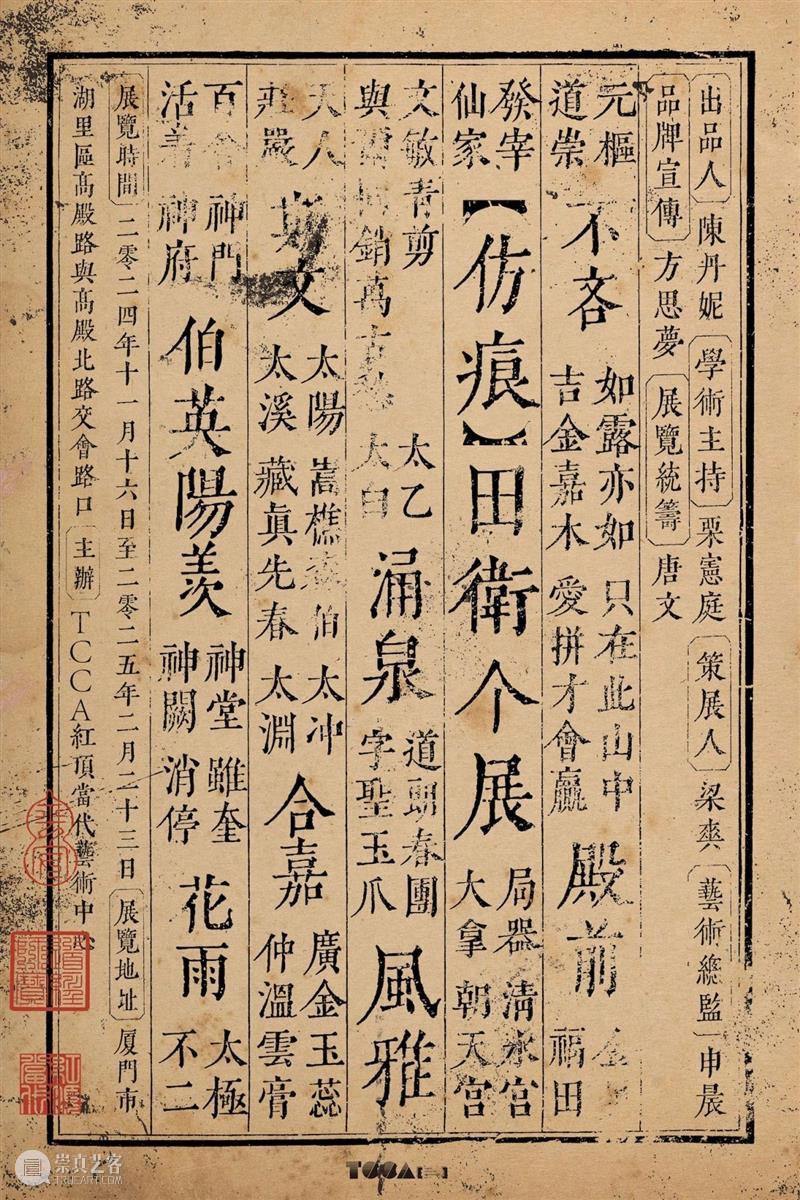 出品人 陳丹妮 學術主持 栗憲庭 策展人 梁爽 藝術總監 申晨
品牌宣傳 方思夢 展覽統籌 唐文
元樞 道崇 不吝 如露亦如 吉金嘉木 只在此山中 愛拼才會贏 殿前 福田
發宰 仙家 【仿痕】田衛个展 局器 大拿 清水宮 朝天宮
文敏青剪 與爾同銷萬古愁 太乙 太白 涌泉 道朝春團 字聖玉爪 風雅
大人 莊嚴 斯文 太陽 太溪 嵩樵森伯 藏真先春 太冲 太淵 合嘉 廣金玉蕊 仲溫雲膏
百會 活着 神門 神府 伯英陽羨 神堂 神闕 雖奎 消停 花雨 太極 不二
展覽時間 二零二四年十一月十六日至二零二五年二月二十三日 展覽地址 厦門市
湖里區高殿路與高殿北路交會路口 主辦 TCCA紅頂當代藝術中心
崇真艺客